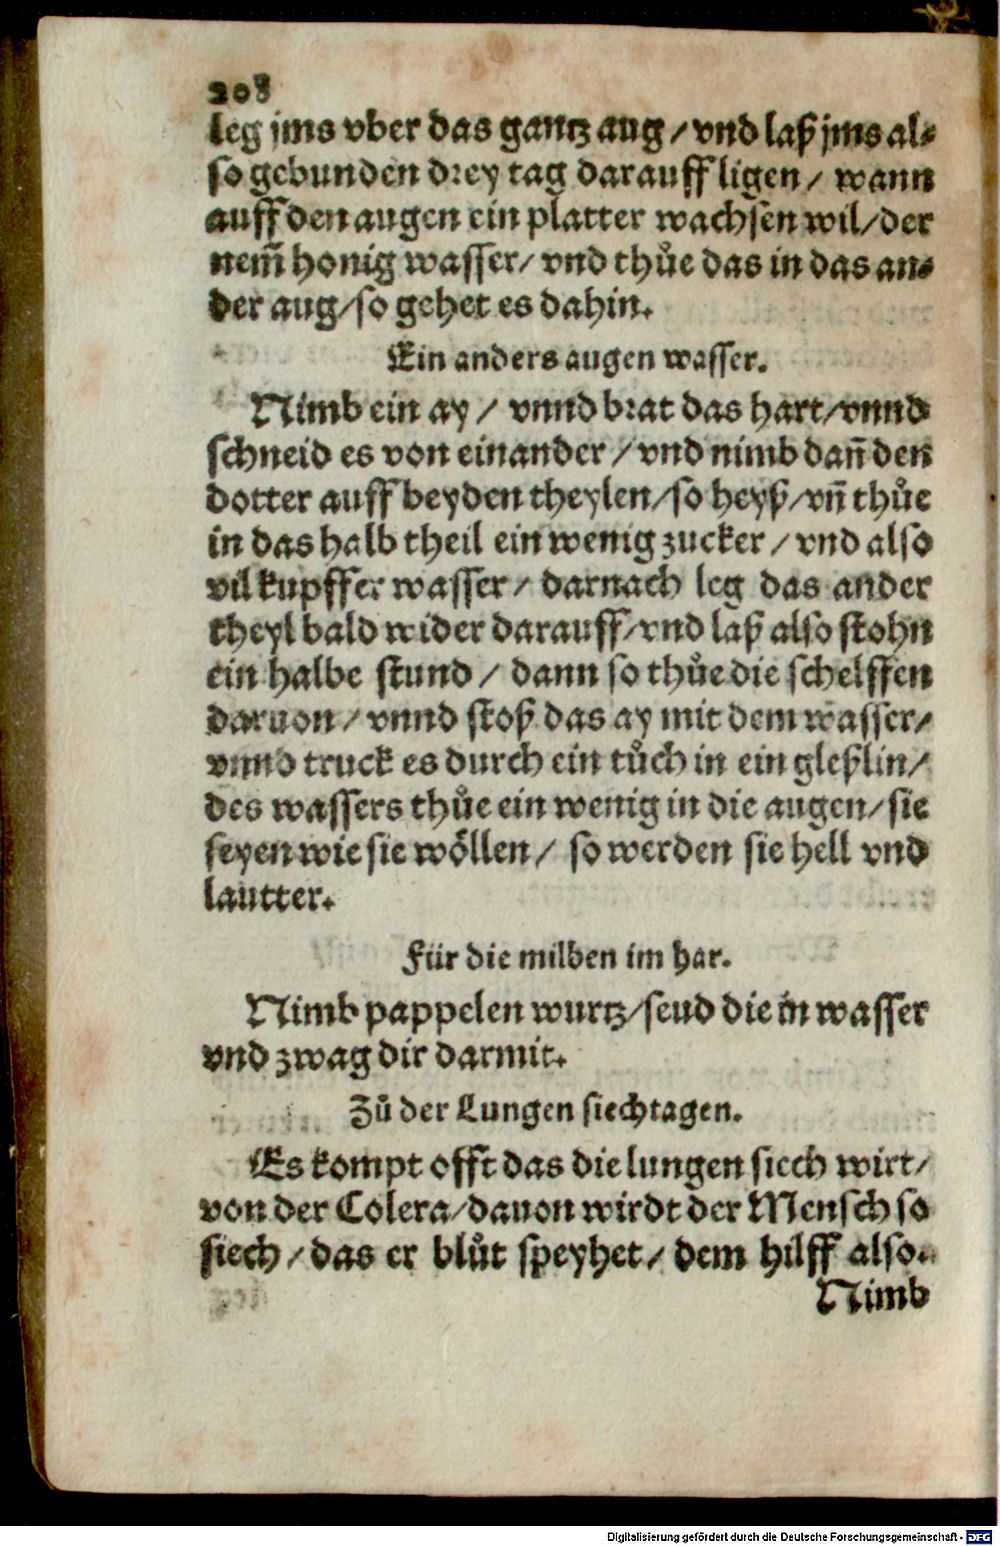 208
leg jms vber das gantz aug / vnd laß jms al⸗
so gebunden drey tag darauff ligen / wann
auff den augen ein platter wachsen wil / der
nem̃ honig wasser / vnd thůe das in das an⸗
der aug / so gehet es dahin.
Ein anders augen wasser.
Nimb ein ay / vnnd brat das hart / vnnd
schneid es von einander / vnd nimb dañ den
dotter auff beyden theylen / so heyß / vñ thůe
in das halb theil ein wenig zucker / vnd also
vil kupffer wasser / darnach leg das ander
theyl bald wider darauff / vnd laß also stohn
ein halbe stund / dann so thůe die schelffen
daruon / vnnd stoß das ay mit dem wasser /
vnnd truck es durch ein tůch in ein gleßlin /
des wassers thůe ein wenig in die augen / sie
seyen wie sie wöllen / so werden sie hell vnd
lautter.
Für die milben im har.
Nimb pappelen wurtz / seud die in wasser
vnd zwag dir darmit.
Zů der Lungen siechtagen.
Es kompt offt das die lungen siech wirt /
von der Colera / dauon wirdt der Mensch so
siech / das er blůt speyhet / dem hilff also.
Nimb
Digitalisierung gefördert durch die Deutsche Forschungsgemeinschaft - DFG